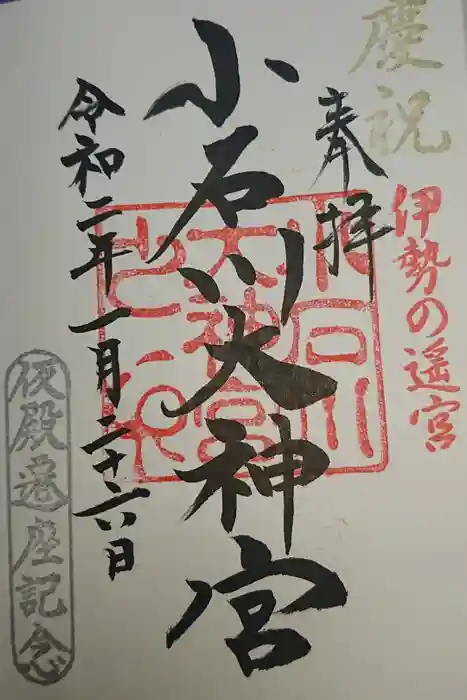 慶祝
伊勢の遥宮
奉拝
小石川大神宮
小石川
大神宮
之印
令和二年一月二十六日
仮殿遷座記念